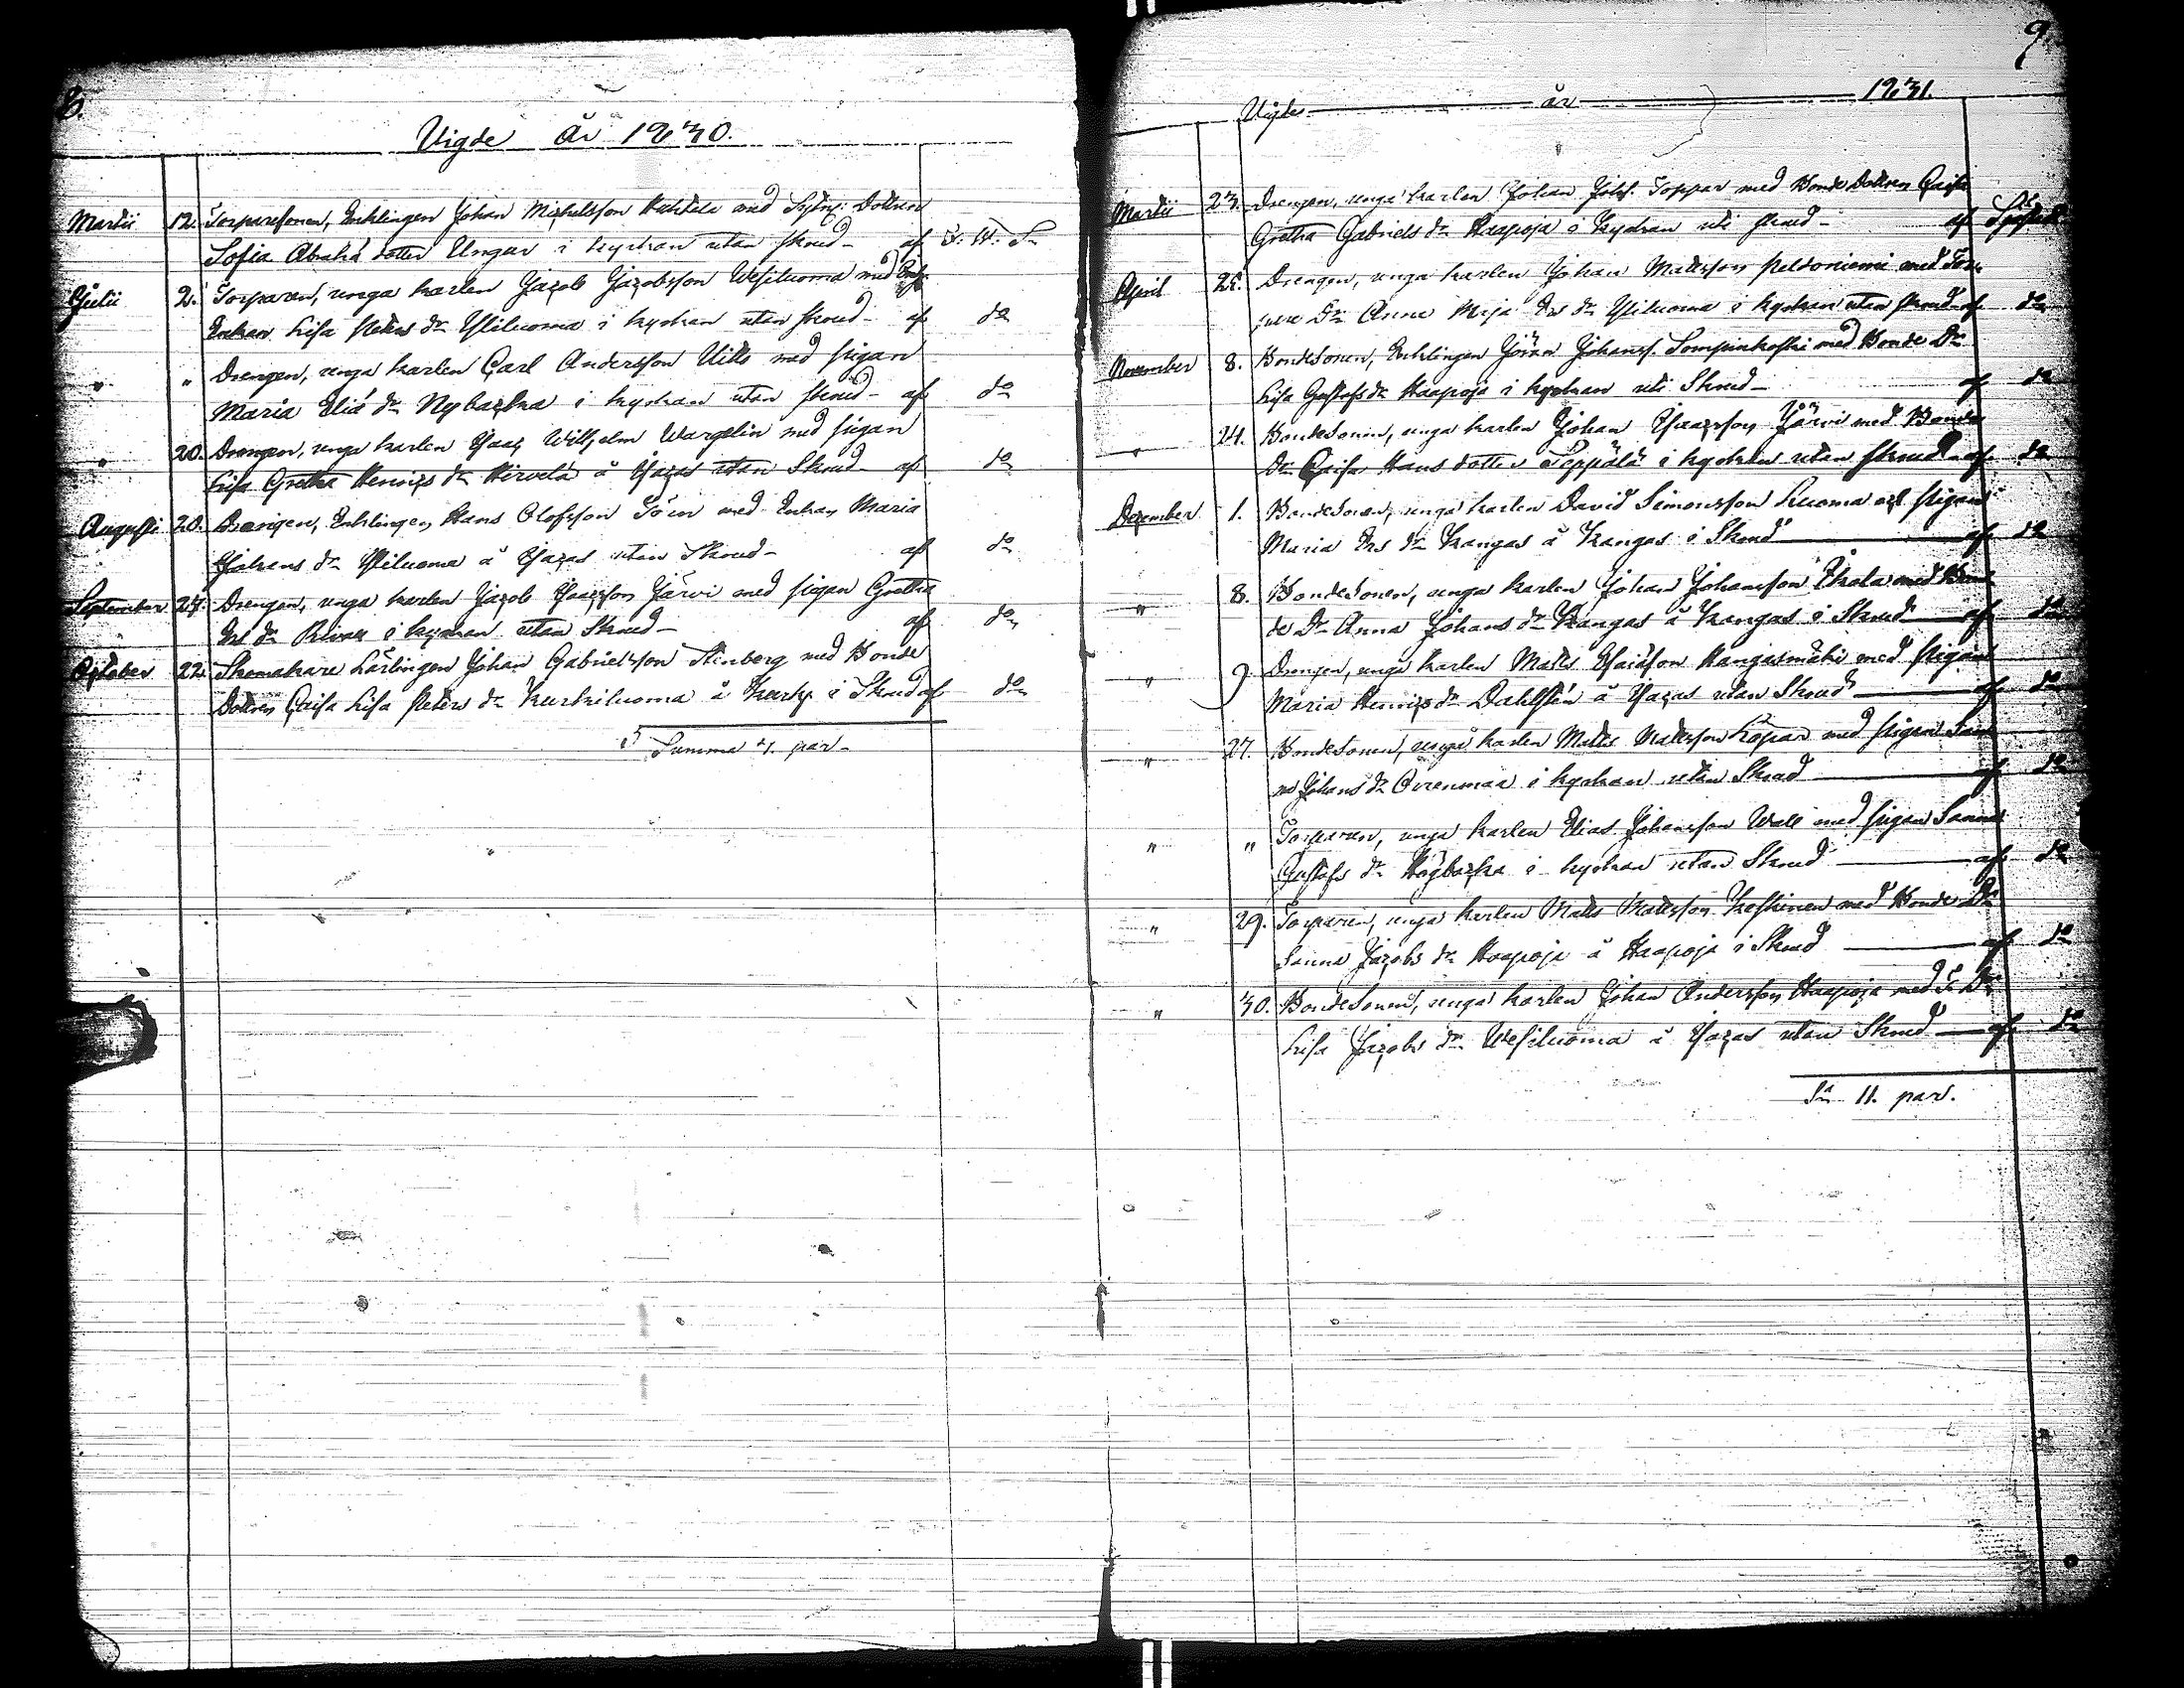 8.
Vigde År 1830.
Martii 12. Torparesonen, Enklingen Johan Michelsson med Dottren
Sofia Abrah. dotter Ungar i kyrkan utan skrud - af
Julii 2. Torparen, unga karlen Jacob Jacobsson Wesiluoma med
Enkan Lisa Peters dr Yliluoma i kyrkan utan skrud - af do
" " Drengen, unga karlen Carl Andersson Uitto med pigan
Maria Eliæ dr Nybacka i kyrkan utan skrud - af do
" 20. Drengen, unga karlen Isaac Wilhelm Wargelin med pigan
Lisa Gretha Henrics dr Hirvelä å Ysacas utan Skrud - af do
Augusti 20. Drengen, Enklingen Hans Olofsson med Enkan Maria
Johans dr Yliluoma å Ysacas utan Skrud - af do
September 24. Drengen, unga karlen Jacob Isacsson Järvi med pigan Gretha
Ers dr i kyrkan utan Skrud - af do
October 22. Skomakare Lärlingen Johan Gabrielsson Stenberg med Bonde
Dottren Caisa Lisa Peters dr Kurkiluoma å i Skrud af do
Summa 7. par -
9.
Vigde år 1831.
Martii 23. Drengen, unga karlen Johan Johs. Toppar med Bonde Dottren Caisa
Gretha Gabriels dr Haapoja i kyrkan uti skrud - af
April 24. Drengen, unga karlen Johan Mattsson Peldoniemi med Tor-
pare Dr Anna Maja Ers dr Yliluoma i kyrkan utan skrud af do
November 8. Bondesonen, Enklingen Göran Johanss. Lompinkoski med Bonde Dr
Lisa Gustafs dr Haapoja i kyrkan uti Skrud - af do
" 24. Bondesonen, unga karlen Johan Isaacsson Järvi med Bonde
Dr Caisa Hans dotter Seppälä i kyrkan utan skrud af do
December 1. Bondesonen, unga karlen David Simonsson Luoma och pigan
Maria Ers dr Kangas å Kangas i Skrud af do
" 8. Bondesonen, unga karlen Johan Johansson med Bon-
de Dr Anna Johans dr Kangas å Kangas i Skrud af do
" 9. Drengen, unga karlen Matts Esaiasson Kangasmäki med pigan
Maria Henrics dr Dahlstén å Ysacas utan Skrud af do
" 27. Bondesonen, unga karlen Matts Mattsson Kopar med pigan San-
na Johans dr Orrenmaa i kyrkan utan Skrud af do
" " Torparen, unga karlen Elias Johansson Wall med pigan Sanna
Gustafs dr Högbacka i kyrkan utan Skrud af do
" 29. Torparen, unga karlen Matts Mattsson Keskinen med Bonde Dr
Sanna Jacobs dr Haapoja å Haapoja i Skrud af do
" 30. Bondesonen, unga karlen Johan Andersson Haapoja med T. Dr
Lisa Jacobs dr Wesiluoma å Ysacas utan Skrud af do
Sa 11. par.